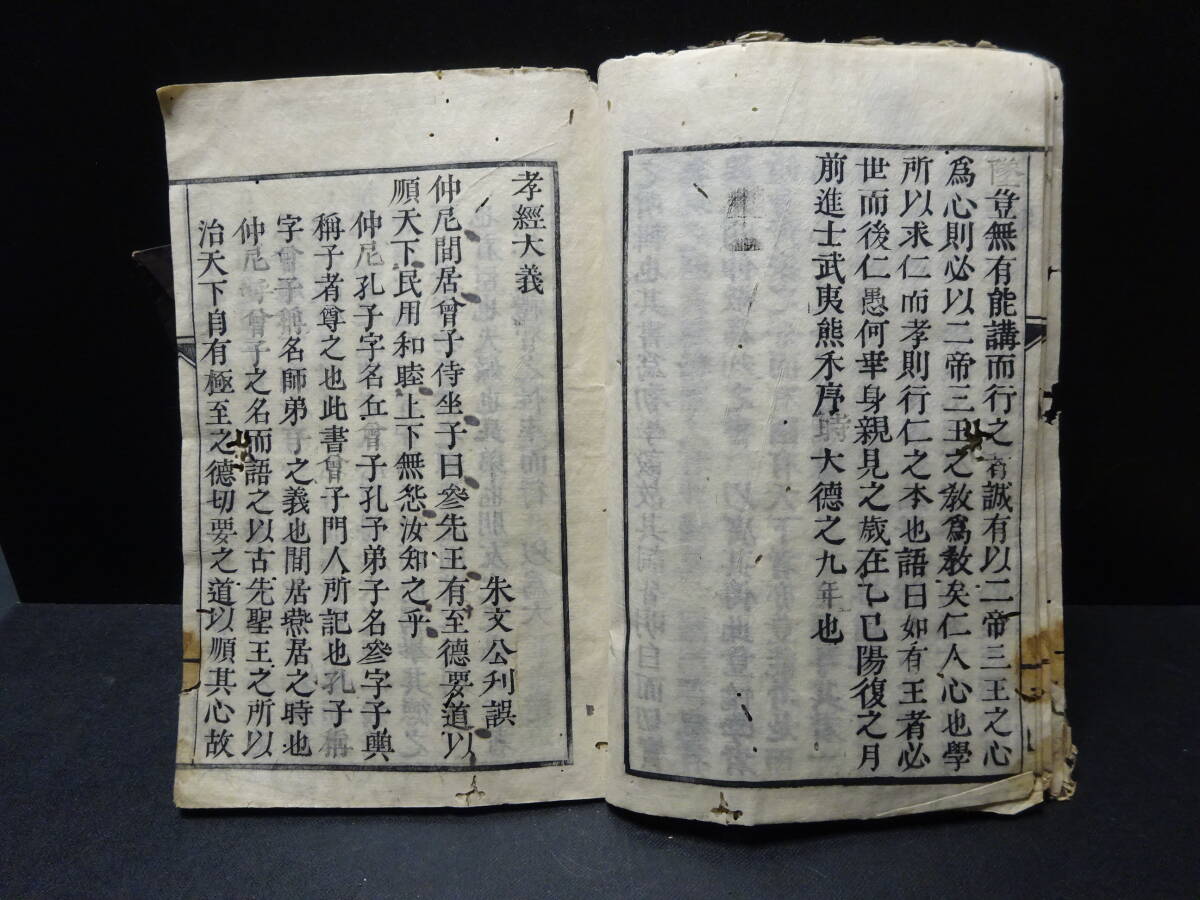 豈無有能講而行之者誠有以二帝三王之心
爲心則必以二帝三王之敎爲敎矣仁人心也學
所以求仁而孝則行仁之本也語曰如有王者必
世而後仁愚何幸身親見之歲在乙巳陽復之月
前進士武夷熊禾序時大德之九年也
孝經大義
朱文公刋誤
仲尼間居曾子侍坐子曰參先王有至德要道以
順天下民用和睦上下無怨汝知之乎
仲尼孔子字名丘曾子孔子弟子名參字子輿
稱子者尊之也此書曾子門人所記也孔子稱
字曾子稱名師弟子之義也間居燕居之時也
仲尼呼曾子之名而語之以古先聖王之所以
治天下自有極至之德切要之道以順其心故